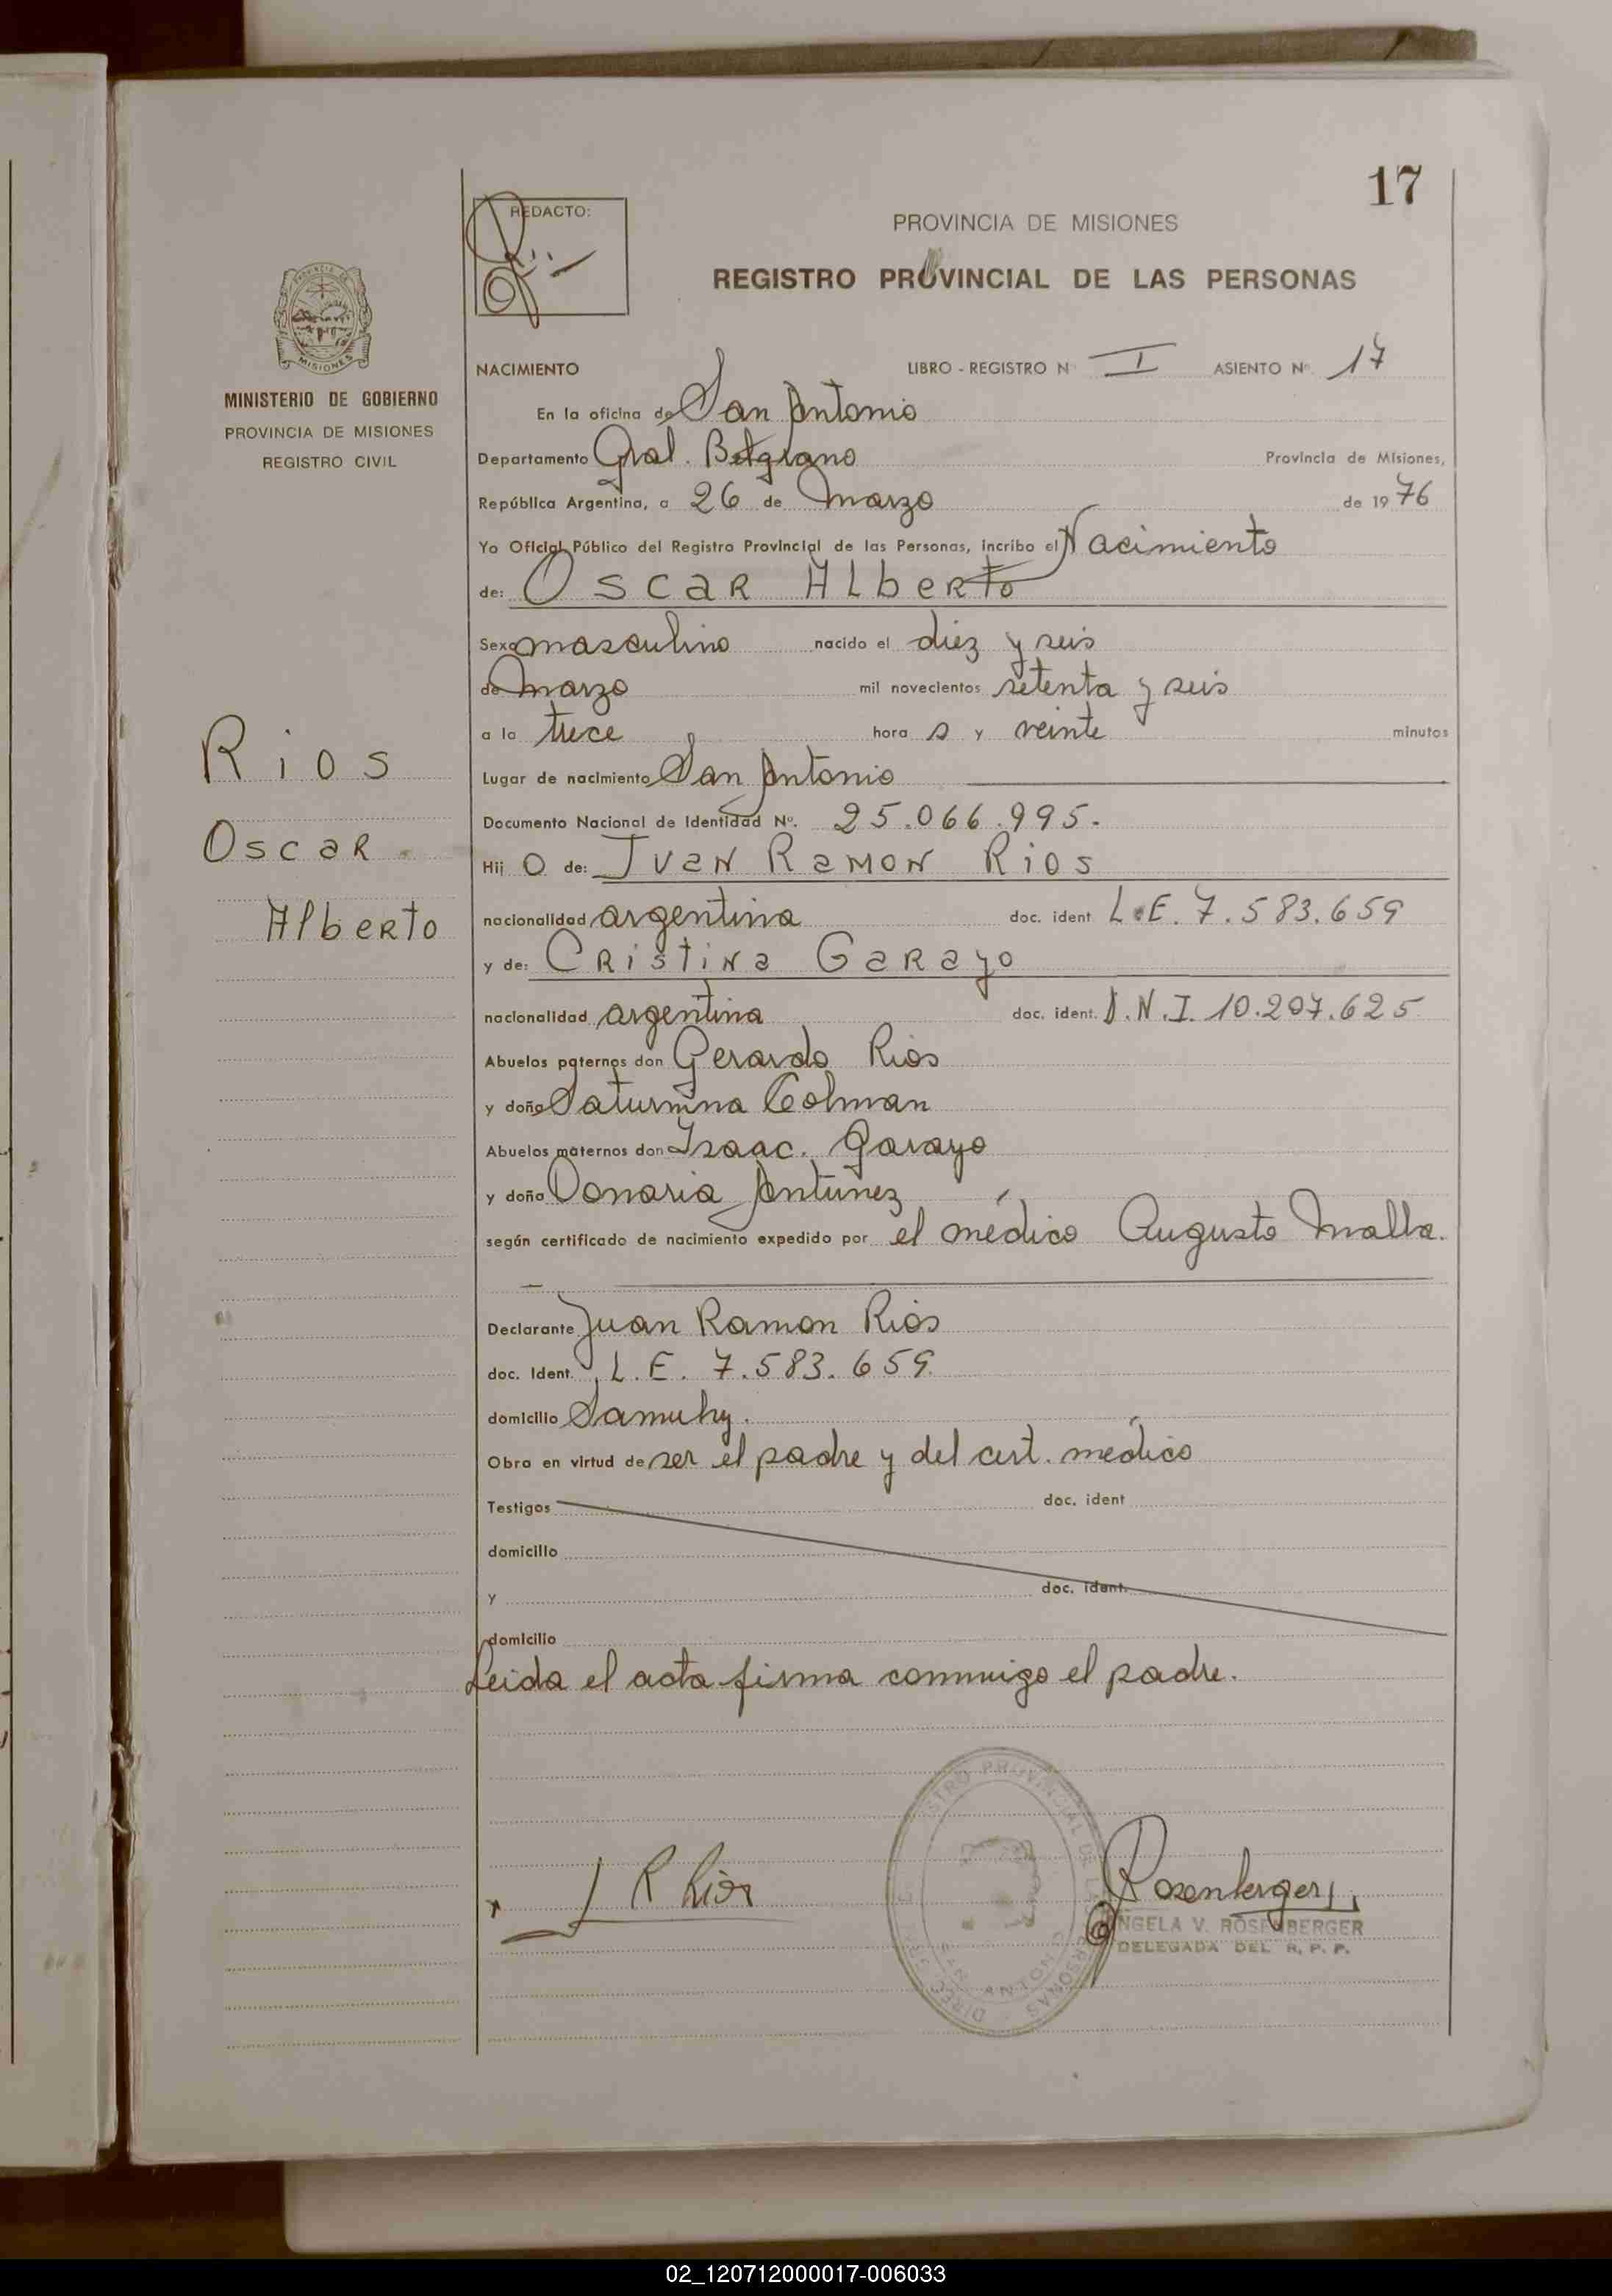 17
REDACTO:
PROVINCIA DE MISIONES
REGISTRO PROVINCIAL DE LAS PERSONAS
MISIONES
MINISTERIO DE GOBIERNO
PROVINCIA DE MISIONES
REGISTRO CIVIL
NACIMIENTO LIBRO - REGISTRO N° I ASIENTO N° 17
En la oficina de San Antonio
Departamento Gral. Belgrano Provincia de Misiones,
República Argentina, a 26 de Marzo de 1976
Yo Oficial Público del Registro Provincial de las Personas, incribo el Nacimiento
de: Oscar Alberto
Sexo masculino nacido el diez y seis
de Marzo mil novecientos setenta y seis
a la trece hora s y veinte minutos
Rios
Lugar de nacimiento San Antonio
Documento Nacional de Identidad N°. 25.066.995.
Oscar
Hij o de: Juan Ramon Rios
Alberto
nacionalidad argentina doc. ident L.E. 7.583.659
y de: Cristina Garayo
nacionalidad argentina doc. ident. D.N.I. 10.207.625
Abuelos paternos don Gerardo Rios
y doña Saturnina Colman
Abuelos maternos don Isaac. Garayo
y doña Donaria Antunez
según certificado de nacimiento expedido por el médico Augusto Malla.
Declarante Juan Ramon Rios
doc. Ident. L.E. 7.583.659.
domicilio Samuhy.
Obra en virtud de ser el padre y del cert. médico
Testigos doc. ident
domicilio
y doc. ident.
domicilio
Leida el acta firma conmigo el padre.
J R Rios
Rosenberger
ANGELA V. ROSENBERGER
DELEGADA DEL R. P. P.
02_120712000017-006033